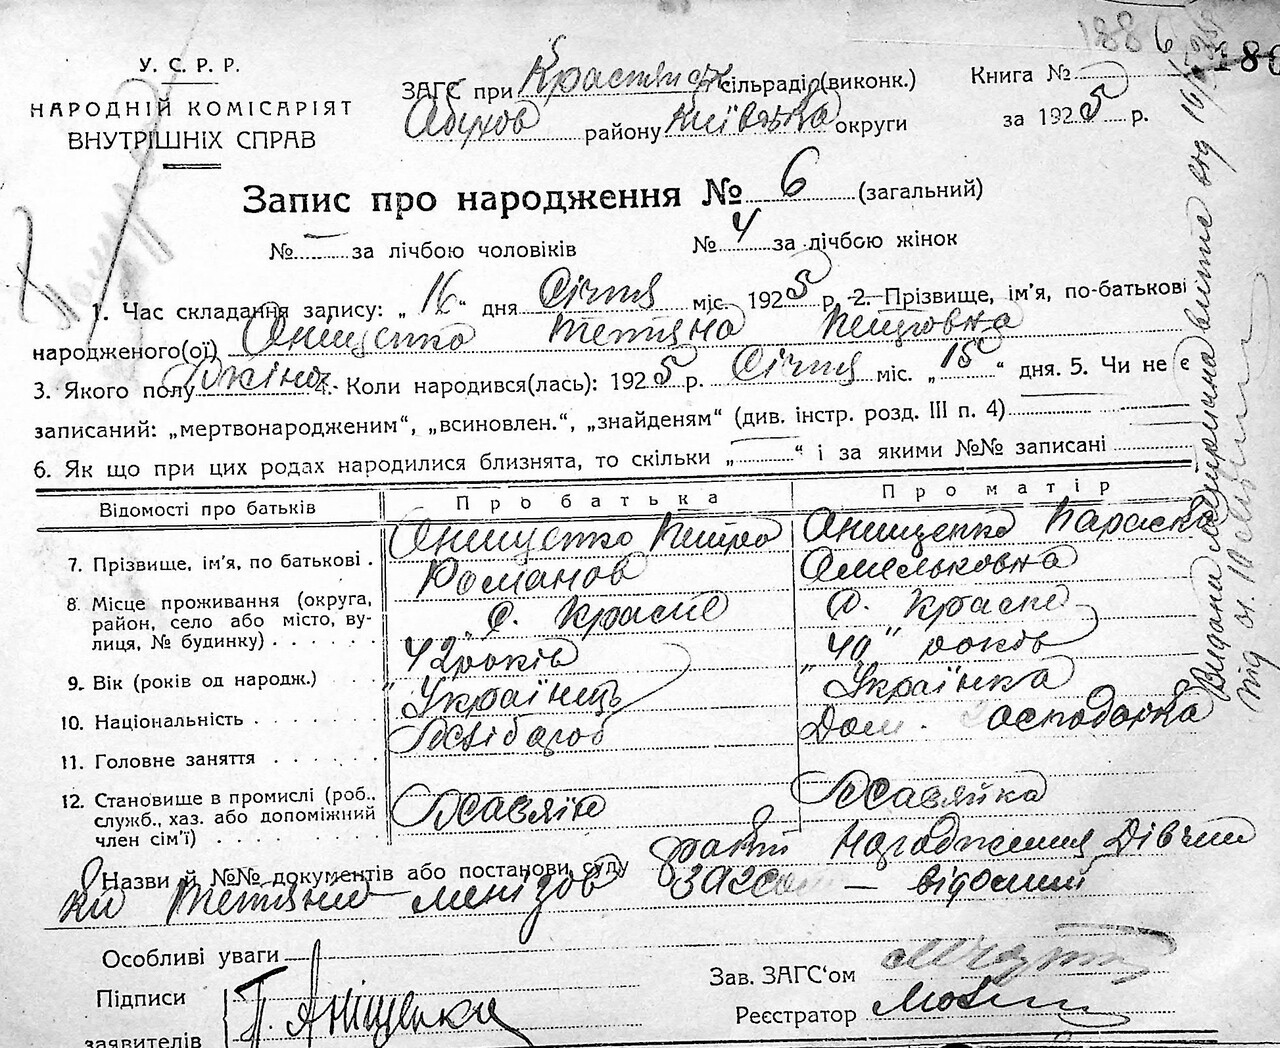 У. С. Р. Р.
НАРОДНІЙ КОМІСАРІЯТ
ВНУТРІШНІХ СПРАВ
1886
ЗАГС при Краснян сільраді (виконк.)
Обухов району Київська округи
Книга №
за 1925 р.
Запис про народження № 6 (загальний)
№ — за лічбою чоловіків № 4 за лічбою жінок
1. Час складання запису: „16“ дня Січня міс. 1925 р. 2. Прізвище, ім'я, по-батькові
народженого(ої) Онищенко Тетяна Петровна
3. Якого полу жіноч. 4. Коли народився(лась): 1925 р. Січня міс. „15“ дня. 5. Чи не є
записаний: „мертвонародженим“, „всиновлен.“, „знайденям“ (див. інстр. розд. III п. 4)
6. Як що при цих родах народилися близнята, то скільки „ “ і за якими №№ записані
Відомості про батьків Про батька Про матір
7. Прізвище, ім'я, по батькові . Онищенко Петро Романов Онищенко Параска Омельковна
8. Місце проживання (округа, район, село або місто, вулиця, № будинку) . . . . . с. Красне с. Красне
9. Вік (років од народж.) . . . 42 років 40 років
10. Національність . . . . . . . Українець Українка
11. Головне заняття . . . . . . Хлібороб Дом. господарка
12. Становище в промислі (роб., служб., хаз. або допоміжний член сім'ї) . . . . . . . . Хазяїн Хазяйка
Назви й №№ документів або постанови суду факт народження Дівчин
ки Тетяни — відомий
Особливі уваги —
Підписи
заявителів П. Аніщенко
Зав. ЗАГС'ом
Реєстратор